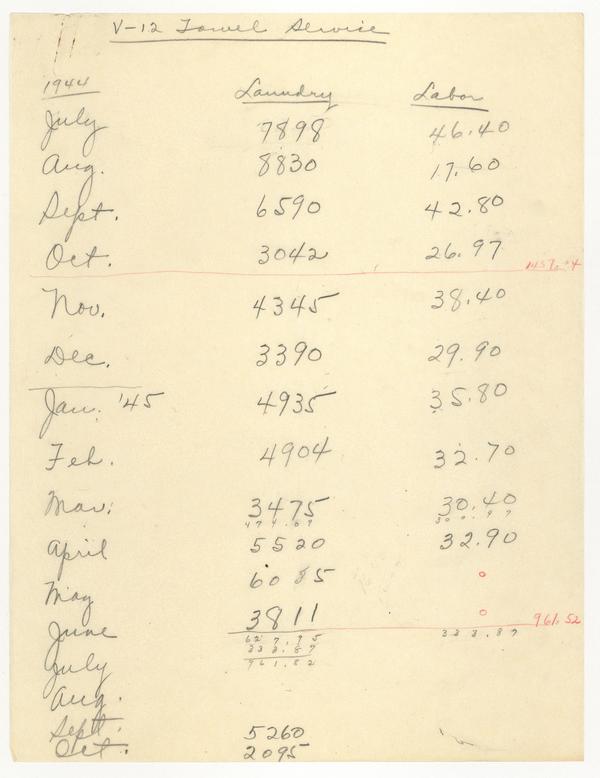 V-12 Towel Service
1944 Laundry Labor
July 7898 46.40
Aug. 8830 17.60
Sept. 6590 42.80
Oct. 3042 26.97
Nov. 4345 38.40
Dec. 3390 29.90
Jan. '45 4935 35.80
Feb. 4904 32.70
Mar. 3475 30.40
April 5520 32.90
May 0
June 3811 0
961.52
627.95 333.87
333.87
July
Aug.
Sept. 5260
Oct. 2095